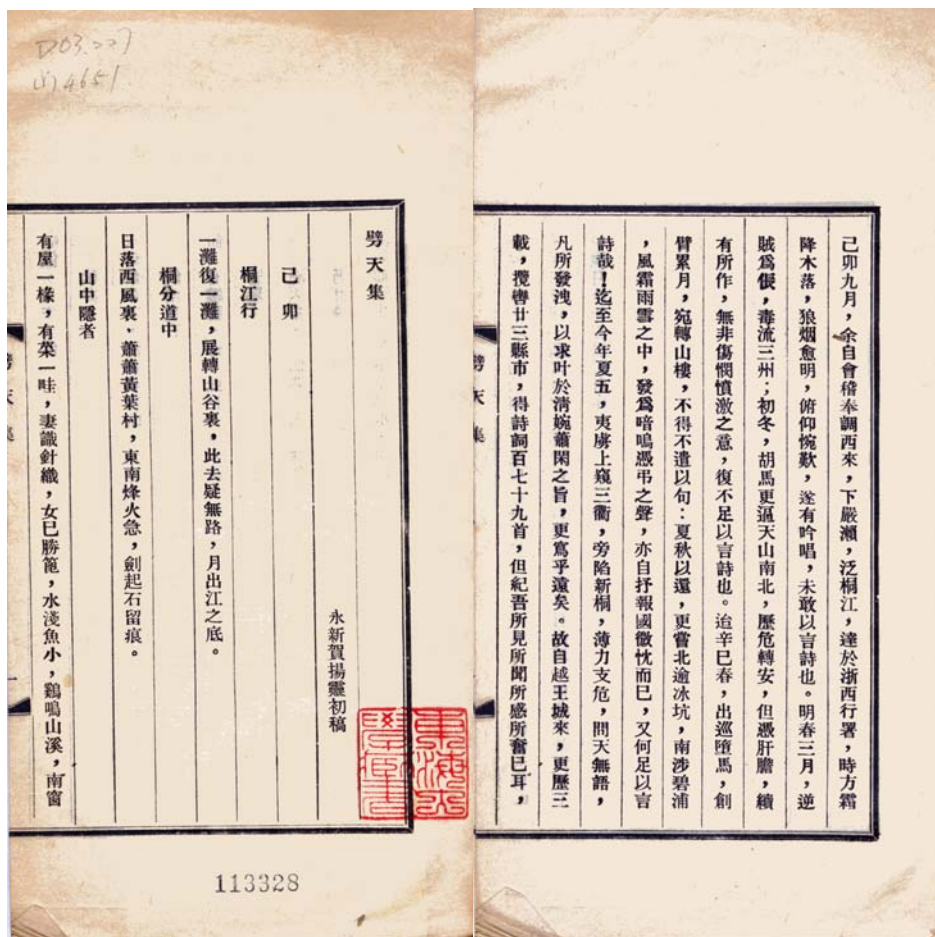 己卯九月，余自會稽奉調西來，下嚴瀨，泛桐江，達於浙西行署，時方霜
降木落，狼烟愈明，俯仰惋歎，遂有吟唱，未敢以言詩也。明春三月，逆
賊爲倀，毒流三州；初冬，胡馬更逼天山南北，歷危轉安，但憑肝膽，續
有所作，無非傷憫憤激之意，復不足以言詩也。迨辛巳春，出巡墮馬，創
臂累月，宛轉山樓，不得不遣以句：夏秋以還，更嘗北逾冰坑，南涉碧浦
，風霜雨雪之中，發爲喑嗚憑弔之聲，亦自抒報國微忱而已，又何足以言
詩哉！迄至今年夏五，夷虜上窺三衢，旁陷新桐，薄力支危，問天無語，
凡所發洩，以求叶於淸婉蕭閑之旨，更寫乎遠矣。故自越王城來，更歷三
載，攬轡廿三縣市，得詩詞百七十九首，但紀吾所見所聞所感所奮已耳，
劈天集
劈天集
永新賀揚靈初稿
己卯
桐江行
一灘復一灘，展轉山谷裏，此去疑無路，月出江之底。
桐分道中
日落西風裏，蕭蕭黃葉村，東南烽火急，劍起石留痕。
山中隱者
有屋一椽，有菜一畦，妻識針織，女已勝篦，水淺魚小，鷄鳴山溪，南窗
劈天集
一
東海大學圖書
113328
D03.227
4651